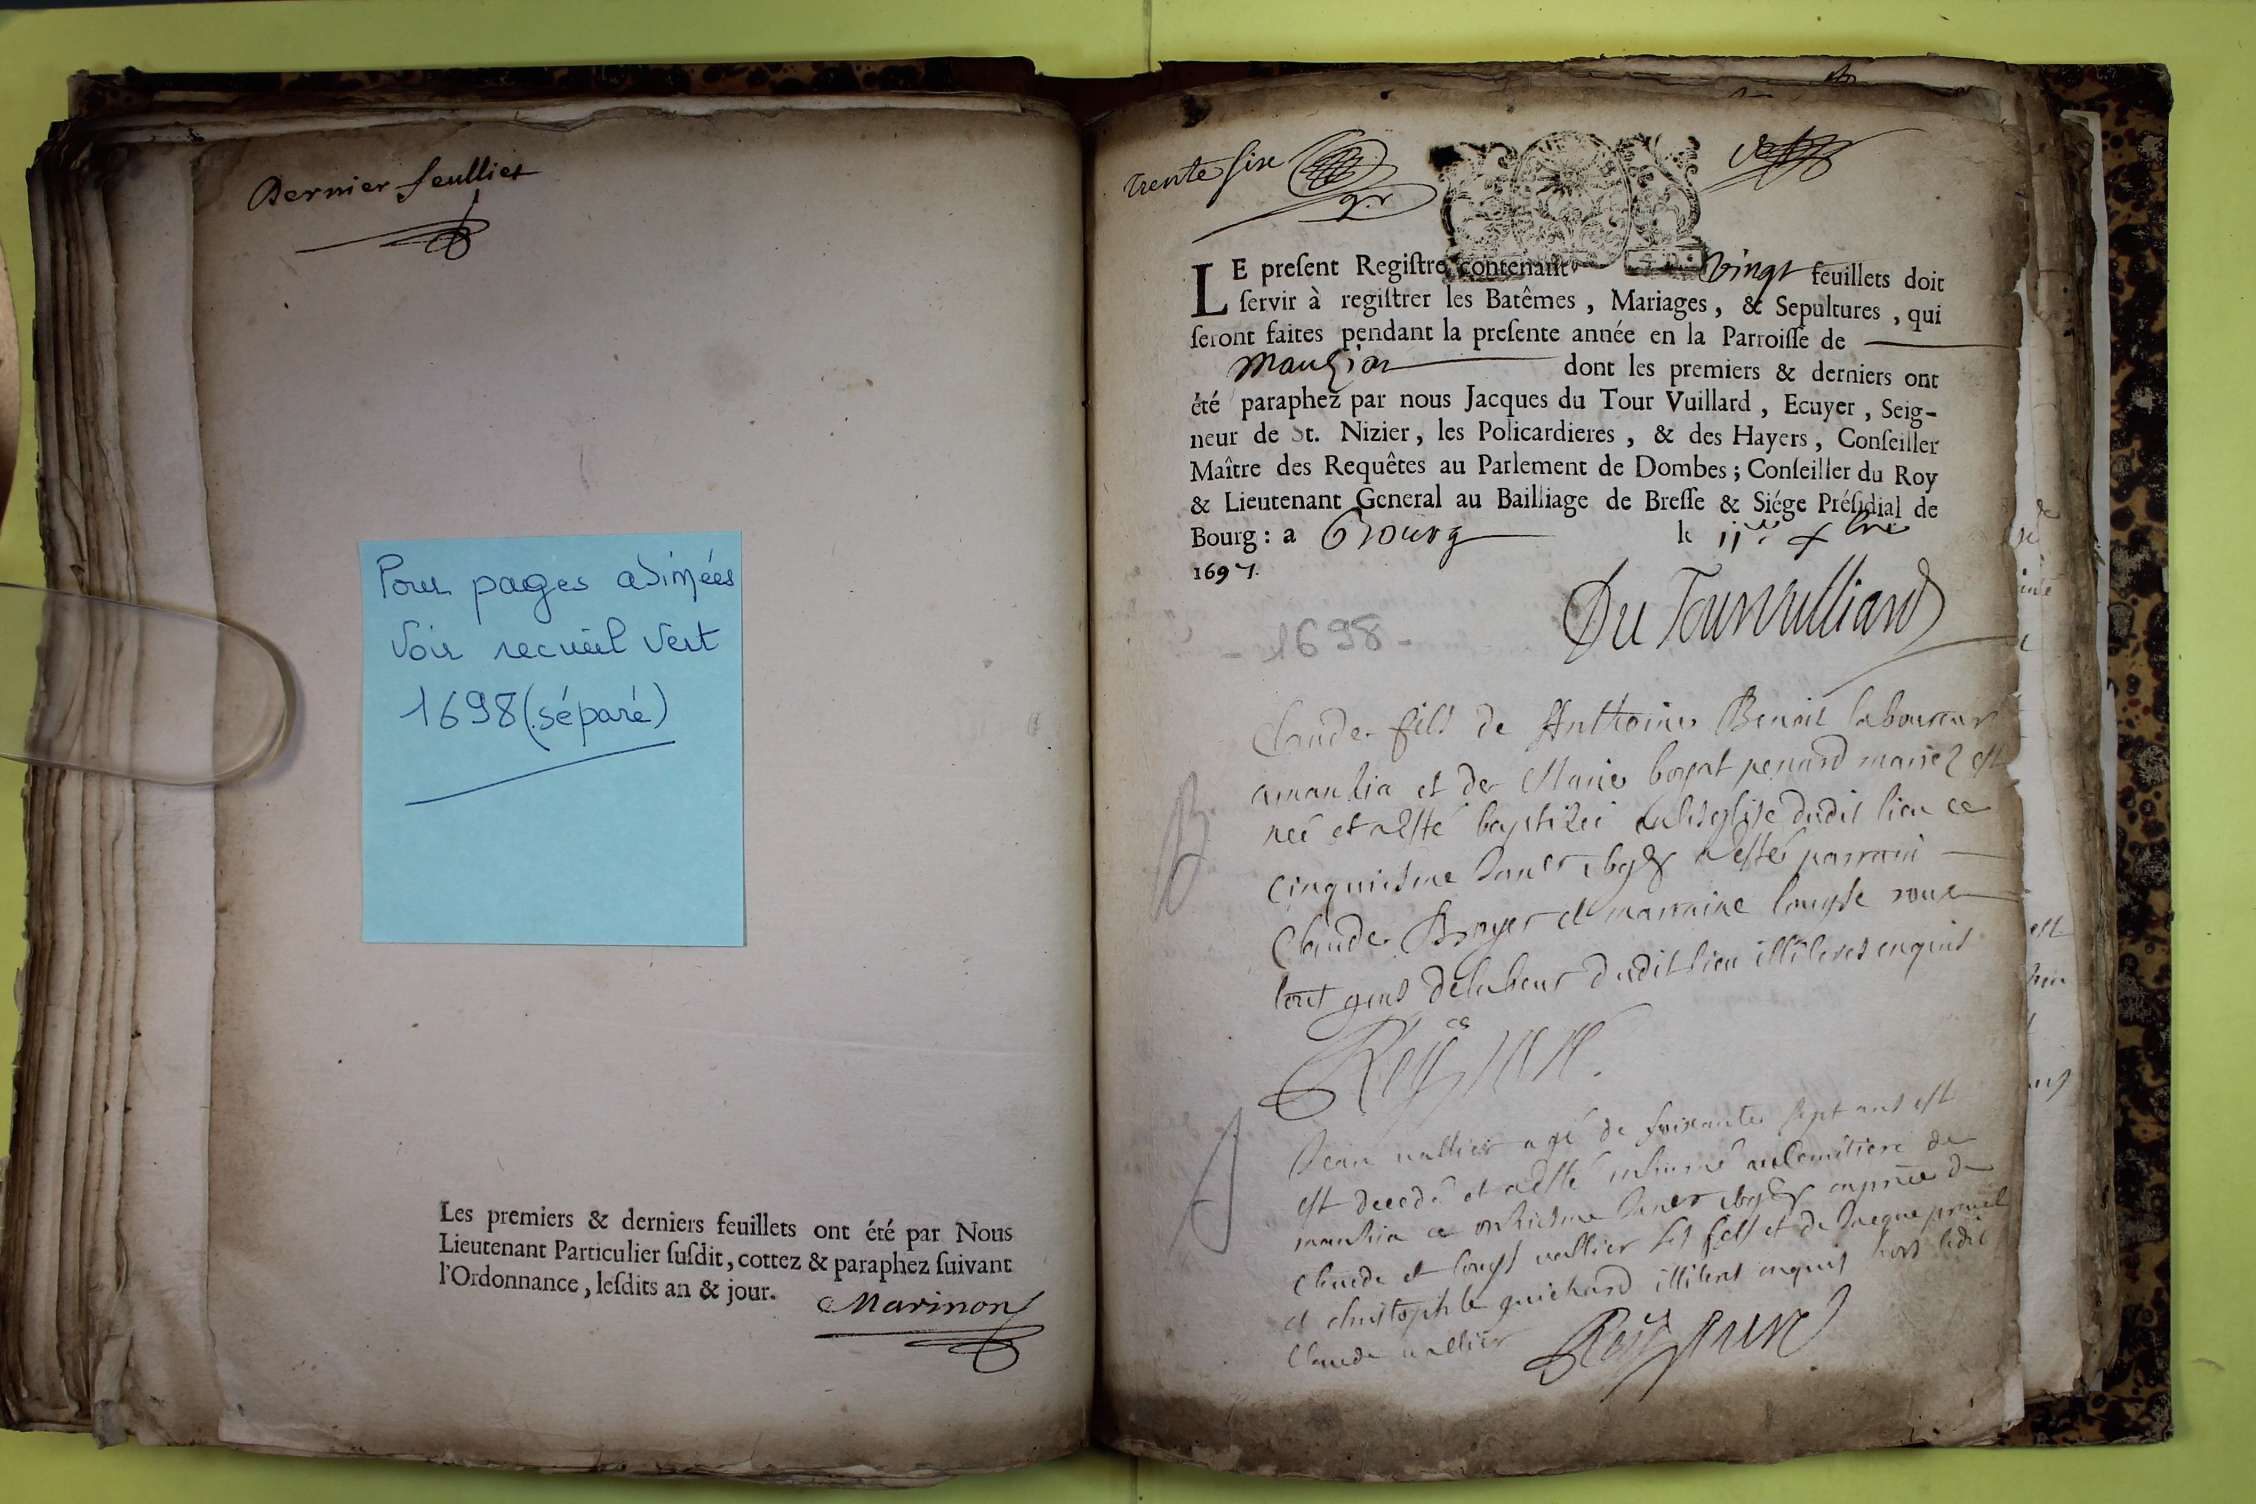 Dernier feulliet
Pour pages abimées
Voir recueil vert
1698 (séparé)
Les premiers & derniers feuillets ont été par Nous
Lieutenant Particulier ſuſdit, cottez & paraphez ſuivant
l'Ordonnance, leſdits an & jour.
Marinon
trente six
LE preſent Regiſtre contenant vingt feuillets doit
ſervir à regiſtrer les Batêmes, Mariages, & Sepultures, qui
ſeront faites pendant la preſente année en la Parroiſſe de
Manzia dont les premiers & derniers ont
été paraphez par nous Jacques du Tour Vuillard, Ecuyer, Seig-
neur de St. Nizier, les Policardieres, & des Hayers, Conſeiller
Maître des Requêtes au Parlement de Dombes; Conſeiller du Roy
& Lieutenant General au Bailliage de Breſſe & Siége Préſidial de
Bourg: a Bourg le 11e xbre
1697.
Du Tourvulliard
- 1698 -
Claude fils de Anthoine Benoit laboureur
amanzia et de Marie boyat penard mariez est
neé et a esté baptizé a leglise dudit lieu ce
cinquiesme a esté parrain
Claude Broyer et marraine louyse roux
tout gens delabeur dudit lieu illiteres enquis
B
S
Jean vallier agé de soixante sept ans est
est decedé et a esté inhumé au cemitiere de
manzia ce onziesme en pnce de
Claude et louys vallier ses fils et de Jacque
et christophle guichard illiteres enquis hors ledit
Claude vallier